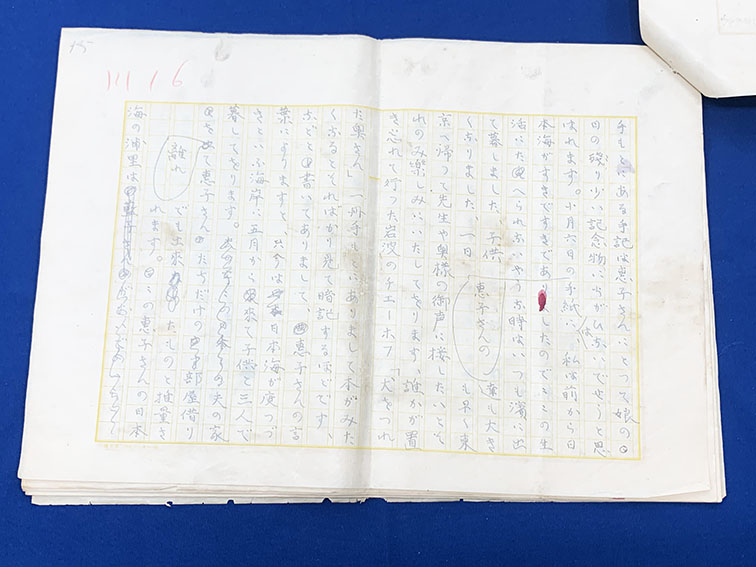 手もとにある手記は恵子さんにとつて娘の
日の残り少い記念物にちがひないでせうと思
はれます。小月六日の手紙には、私は前から日
本海がすきですきでありましたのでこの生
活にたへられないやうな時はいつも濱に出
て暮しました、子供も大き
くなりました、一日
恵子さんの
も早く東
京へ帰つて先生や奥様の御声に接したいとそ
れのみ楽しみにいたしてをります、誰かが置
き忘れて行つた岩波のチエーホフ「犬をつれ
た奥さん」一册手もとにありまして本がみた
くなるとそればかり見て暗記するほどです、
などと書いてありまして、恵子さんの言
葉によりますと、只今は日本海が度つづ
きといふ海岸に五月から來て子供と三人で
暮してをります。
夫の家
を出て恵子さんたちだけの部屋借り
離れ
でも出來たものと推量さ
れます。この恵子さんの日本
海の浦里は
111 16
15